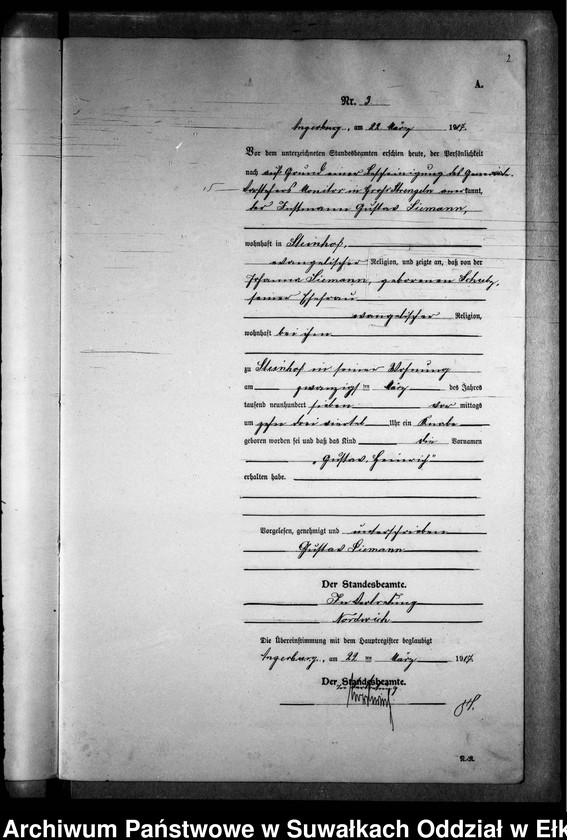 2
A.
Nr. 3
Angerburg, am 22 März 1907.
Vor dem unterzeichneten Standesbeamten erschien heute, der Persönlichkeit
nach auf Grund einer Bescheinigung des Gemeinde-
vorstehers Monitor in Groß Strengeln anerkannt,
der Instmann Gustav Siemann,
wohnhaft in Steinhof,
evangelischer Religion, und zeigte an, daß von der
Johanna Siemann, geborenen Schulz,
seiner Ehefrau
evangelischer Religion,
wohnhaft bei ihm
zu Steinhof in seiner Wohnung
am zwanzigst ten März des Jahres
tausend neunhundert sieben vor mittags
um zehn drei viertel Uhr ein Knabe
geboren worden sei und daß das Kind die Vornamen
"Gustav, Heinrich"
erhalten habe.
Vorgelesen, genehmigt und unterschrieben
Gustav Siemann
Der Standesbeamte.
In Vertretung
Nordwich
Die Übereinstimmung mit dem Hauptregister beglaubigt
Angerburg, am 22 ten März 1907.
Der Standesbeamte.
In Vertretung
Archiwum Państwowe w Suwałkach Oddział w Ełk